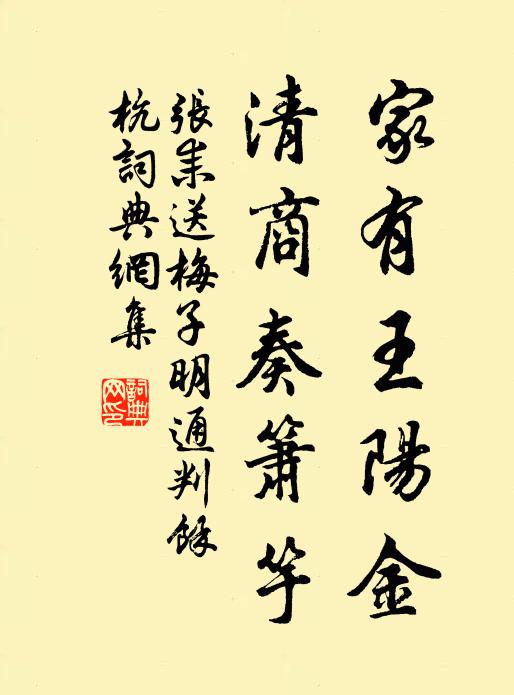 家有王陽金
清商奏簫竽
張耒送梅子明通判餘
杭詞典網集
詞典
网印